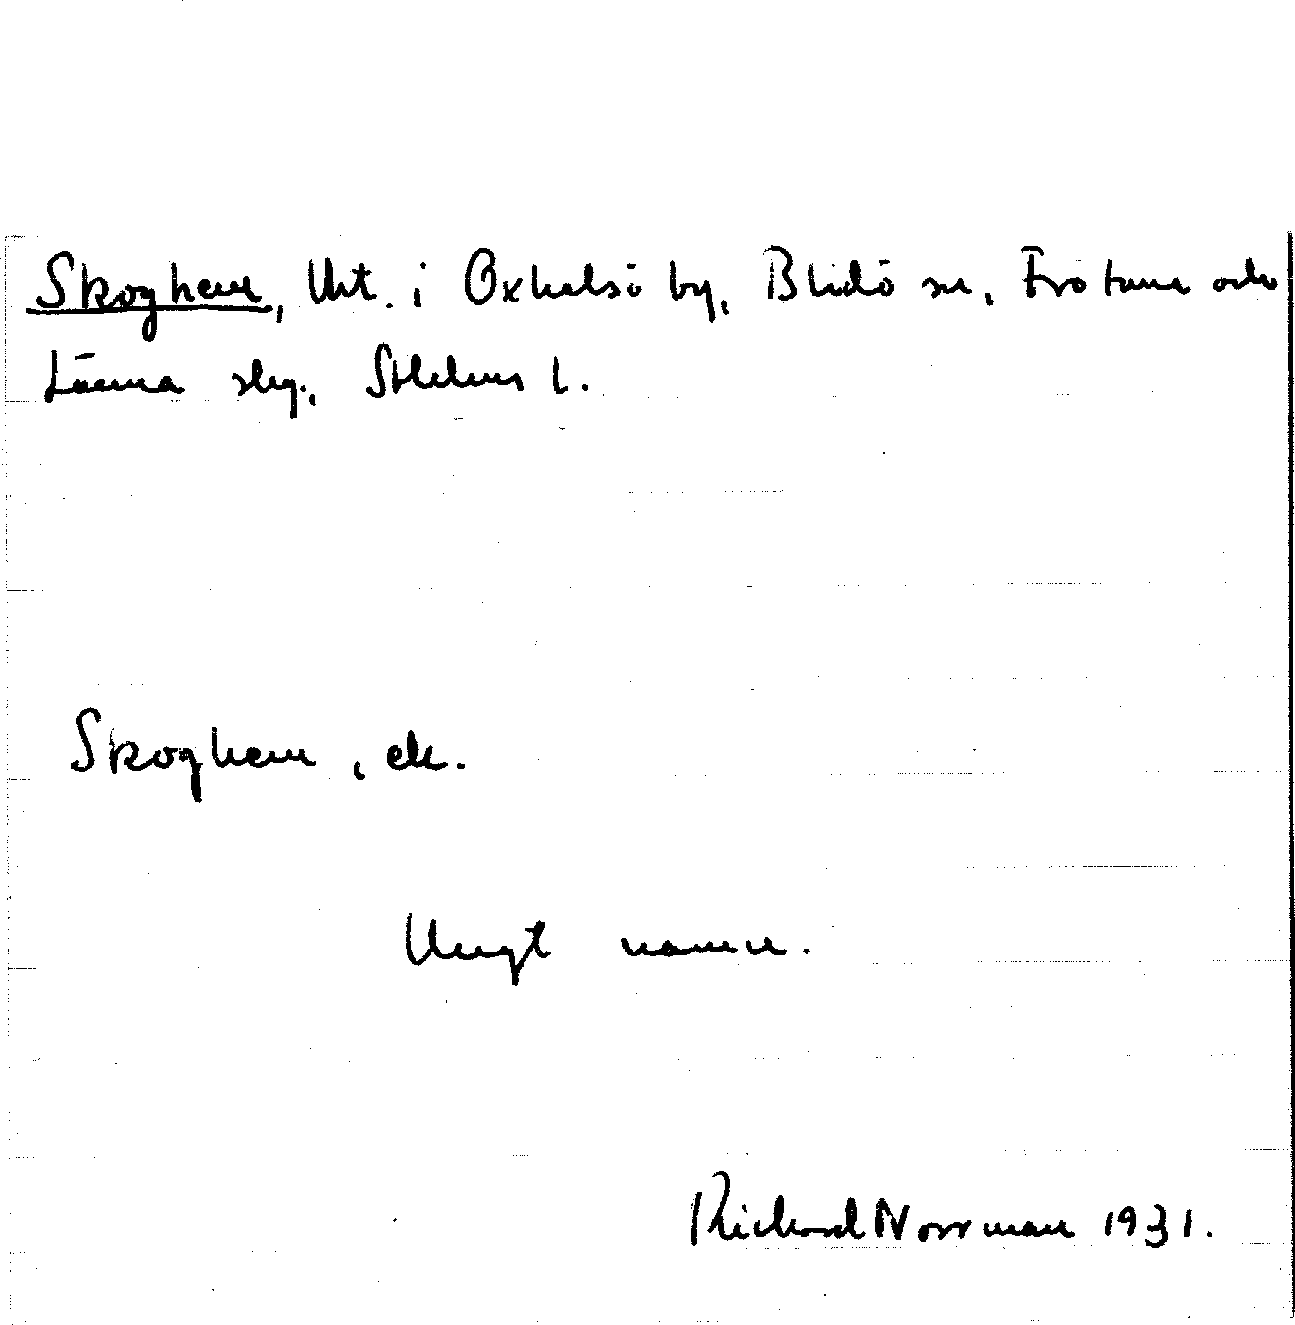 Skoghem, Uht. i Oxhalsö by, Blidö sn, Frötuna och
Länna skg, Sthlms l.
Skoghem, ek.
Ungt namn.
Rickard Norrman 1931.